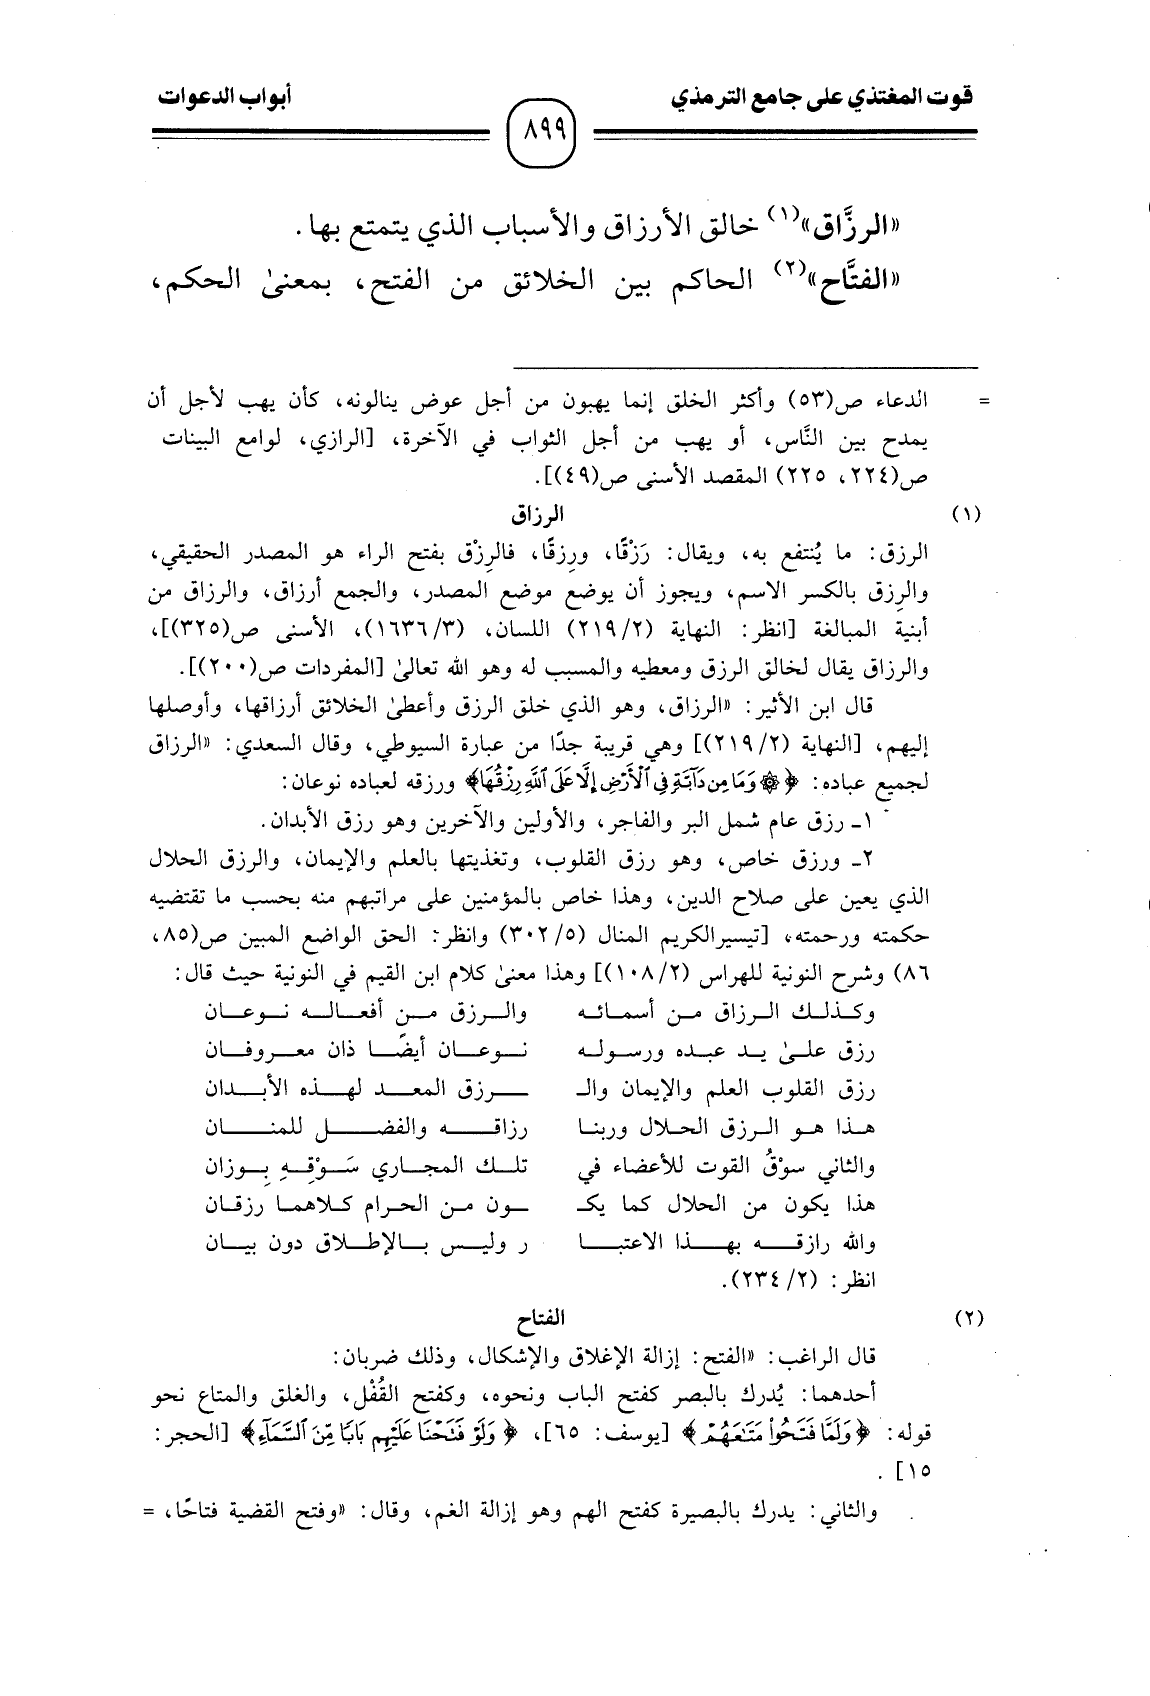 قوت المغتذي على جامع الترمذي
أبواب الدعوات
٨٩٩
«الرزَّاق»(١) خالق الأرزاق والأسباب الذي يتمتع بها.
«الفتَّاح»(٢) الحاكم بين الخلائق من الفتح، بمعنىٰ الحكم،
= الدعاء ص(٥٣) وأكثر الخلق إنما يهبون من أجل عوض ينالونه، كأن يهب لأجل أن
يمدح بين النَّاس، أو يهب من أجل الثواب في الآخرة، [الرازي، لوامع البينات
ص(٢٢٤، ٢٢٥) المقصد الأسنى ص(٤٩)].
(١) الرزاق
الرزق: ما يُنتفع به، ويقال: رَزْقًا، ورِزقًا، فالرِزْق بفتح الراء هو المصدر الحقيقي،
والرِزق بالكسر الاسم، ويجوز أن يوضع موضع المصدر، والجمع أرزاق، والرزاق من
أبنية المبالغة [انظر: النهاية (٢/ ٢١٩) اللسان، (٣/ ١٦٣٦)، الأسنى ص(٣٢٥)]،
والرزاق يقال لخالق الرزق ومعطيه والمسبب له وهو الله تعالىٰ [المفردات ص(٢٠٠)].
قال ابن الأثير: «الرزاق، وهو الذي خلق الرزق وأعطىٰ الخلائق أرزاقها، وأوصلها
إليهم، [النهاية (٢/ ٢١٩)] وهي قريبة جدًا من عبارة السيوطي، وقال السعدي: «الرزاق
لجميع عباده: ﴿۞ وَمَا مِن دَآبَّةٍ فِي ٱلْأَرْضِ إِلَّا عَلَى ٱللَّهِ رِزْقُهَا﴾ ورزقه لعباده نوعان:
١ـ رزق عام شمل البر والفاجر، والأولين والآخرين وهو رزق الأبدان.
٢ـ ورزق خاص، وهو رزق القلوب، وتغذيتها بالعلم والإيمان، والرزق الحلال
الذي يعين على صلاح الدين، وهذا خاص بالمؤمنين على مراتبهم منه بحسب ما تقتضيه
حكمته ورحمته، [تيسيرالكريم المنال (٥/ ٣٠٢) وانظر: الحق الواضع المبين ص(٨٥،
٨٦) وشرح النونية للهراس (٢/ ١٠٨)] وهذا معنىٰ كلام ابن القيم في النونية حيث قال:
وكذلك الرزاق من أسمائه والرزق من أفعاله نوعان
رزق علىٰ يد عبده ورسوله نوعان أيضًا ذان معروفان
رزق القلوب العلم والإيمان والـ ـرزق المعد لهذه الأبدان
هذا هو الرزق الحلال وربنا رزاقه والفضل للمنان
والثاني سوْقُ القوت للأعضاء في تلك المجاري سَوْقِهِ بِوزان
هذا يكون من الحلال كما يكـ ـون من الحرام كلاهما رزقان
والله رازقه بهذا الاعتبا ر وليس بالإطلاق دون بيان
انظر: (٢/ ٢٣٤).
(٢) الفتاح
قال الراغب: «الفتح: إزالة الإغلاق والإشكال، وذلك ضربان:
أحدهما: يُدرك بالبصر كفتح الباب ونحوه، وكفتح القُفْل، والغلق والمتاع نحو
قوله: ﴿وَلَمَّا فَتَحُواْ مَتَٰعَهُمْ﴾ [يوسف: ٦٥]، ﴿وَلَوْ فَتَحْنَا عَلَيْهِم بَابًا مِّنَ ٱلسَّمَآءِ﴾ [الحجر:
١٥].
والثاني: يدرك بالبصيرة كفتح الهم وهو إزالة الغم، وقال: «وفتح القضية فتاحًا، =